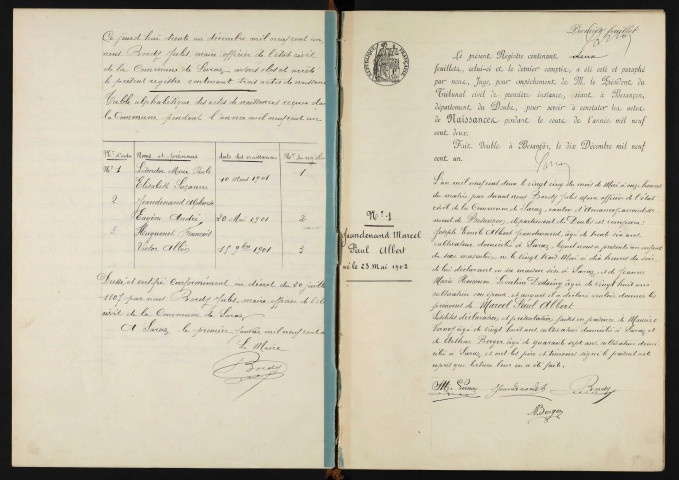 Ce jourd'hui trente un décembre mil neuf cent un
nous Bordy Jules, maire officier de l'état civil
de la Commune de Saraz, avons clos et arrêté
le présent registre contenant trois actes de naissance
Table alphabétique des actes de naissances reçus dans
la Commune pendant l'année mil neuf cent un
Nos d'ordre Noms et prénoms date des naissances Nos du registre
No 1 Marie Paule
Elisabeth Suzanne 10 Mars 1901 1
2 Jeandenand Alphonse
Eugène André 20 Mai 1901 2
3 Huguenet François
Victor Albin 15 9bre 1901 3
Dressé et certifié conformément au décret du 20 juillet
1807 par nous Bordy Jules, maire officier de l'état
civil de la Commune de Saraz
A Saraz, le premier Janvier mil neuf cent
Le Maire
Bordy
Premier feuillet
Le présent Registre contenant deux
feuillets, celui-ci et le dernier compris, a été coté et paraphé
par nous, Juge, pour empêchement de M. le Président du
Tribunal civil de première instance, séant à Besançon,
département du Doubs, pour servir à constater les actes
de Naissances pendant le cours de l'année mil neuf
cent deux.
Fait double à Besançon, le dix Décembre mil neuf
cent un.
No 1
Jeandenand Marcel
Paul Albert
né le 23 Mai 1902
L'an mil neuf cent deux le vingt cinq du mois de Mai à onze heures
du matin par devant nous Bordy Jules Maire officier de l'état
civil de la Commune de Saraz, canton d'Amancey, arrondisse-
ment de Besançon, département du Doubs est comparu
Joseph Emile Albert Jeandenand, âgé de trente six ans
cultivateur domicilié à Saraz, lequel nous a présenté un enfant
du sexe masculin, né le vingt trois Mai à dix heures du soir
de lui déclarant en sa maison sise à Saraz, et de Jeanne
Marie âgée de vingt huit ans
cultivatrice son épouse, et auquel il a déclaré vouloir donner les
prénoms de Marcel Paul Albert
Lesdites déclaration et présentation faites en présence de Maurice
âgé de vingt huit ans cultivateur domicilié à Saraz et
de Arthur Berger âgé de quarante sept ans cultivateur domi-
cilié à Saraz, et ont les père et témoins signé le présent acte
après que lecture leur en a été faite.
Jeandenand Bordy
Berger